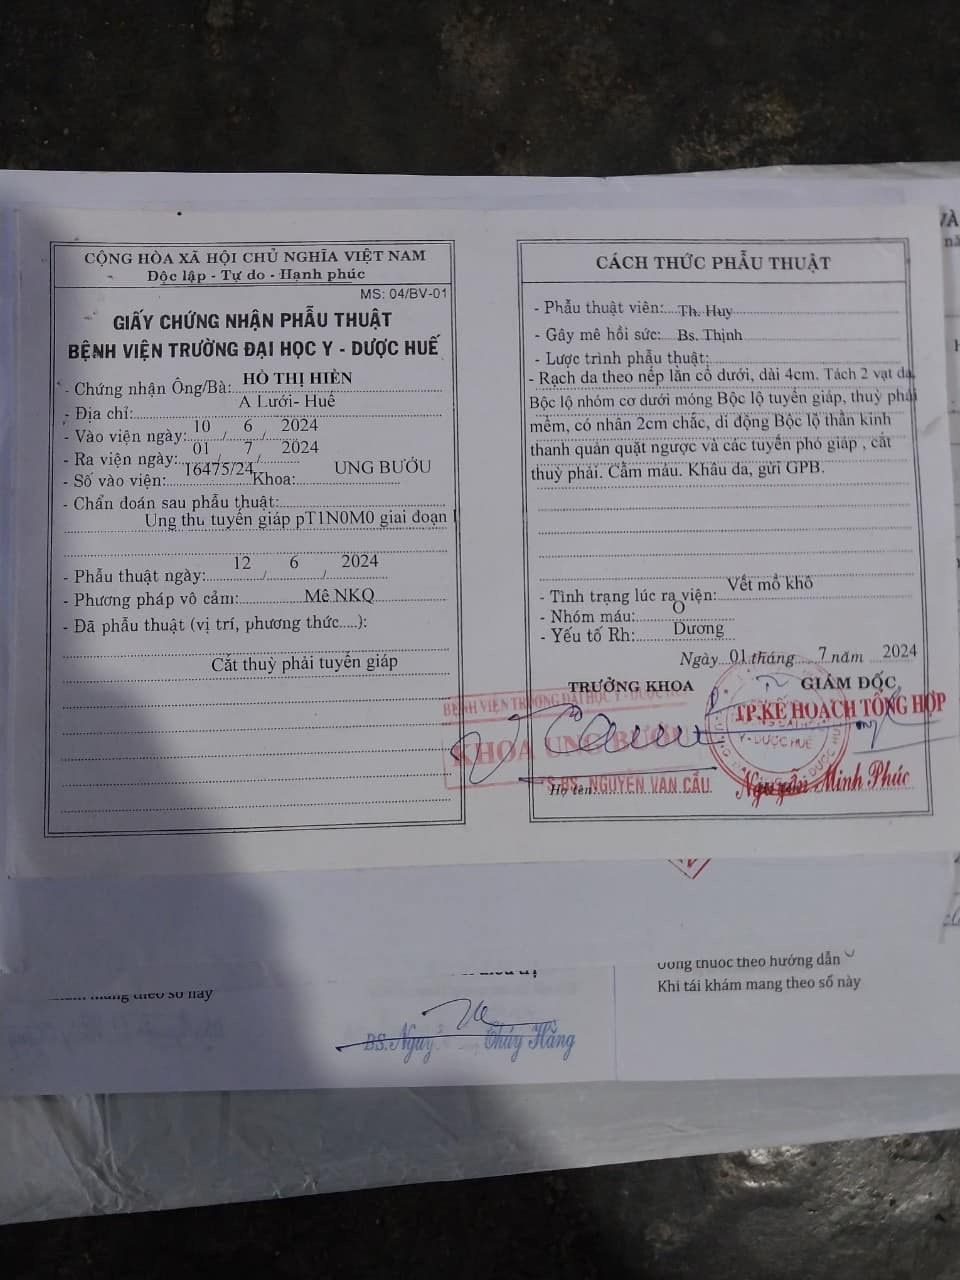 CỘNG HÒA XÃ HỘI CHỦ NGHĨA VIỆT NAM
Độc lập - Tự do - Hạnh phúc
MS: 04/BV-01
GIẤY CHỨNG NHẬN PHẪU THUẬT
BỆNH VIỆN TRƯỜNG ĐẠI HỌC Y - DƯỢC HUẾ
- Chứng nhận Ông/Bà: HỒ THỊ HIÈN
- Địa chỉ: A Lưới- Huế
- Vào viện ngày: 10 / 6 / 2024
- Ra viện ngày: 01 / 7 / 2024
- Số vào viện: 16475/24 Khoa: UNG BƯỚU
- Chẩn đoán sau phẫu thuật:
Ung thu tuyến giáp pT1N0M0 giai đoạn
- Phẫu thuật ngày: 12 / 6 / 2024
- Phương pháp vô cảm: Mê NKQ
- Đã phẫu thuật (vị trí, phương thức.....):
Cắt thuỳ phải tuyến giáp
CÁCH THỨC PHẪU THUẬT
- Phẫu thuật viên: Th. Huy
- Gây mê hồi sức: Bs. Thịnh
- Lược trình phẫu thuật:
- Rạch da theo nếp lằn cổ dưới, dài 4cm. Tách 2 vạt da.
Bộc lộ nhóm cơ dưới móng Bộc lộ tuyến giáp, thuỳ phải
mềm, có nhân 2cm chắc, di động Bộc lộ thần kinh
thanh quản quặt ngược và các tuyến phó giáp , cắt
thuỳ phải. Cầm máu. Khâu da, gửi GPB.
- Tình trạng lúc ra viện: Vết mổ khô
- Nhóm máu: O
- Yếu tố Rh: Dương
Ngày 01 tháng 7 năm 2024
TRƯỞNG KHOA
GIÁM ĐỐC
BỆNH VIỆN TRƯỜNG ĐẠI HỌC Y - DƯỢC HUẾ
TP.KẾ HOẠCH TỔNG HỢP
KHOA UNG BƯỚU
Y - DƯỢC HUẾ
Họ tên:
TS.BS. NGUYỄN VĂN CẦU
Nguyễn Minh Phúc
Uống thuốc theo hướng dẫn
mang theo sổ này
Khi tái khám mang theo sổ này
BS. Thúy Hằng